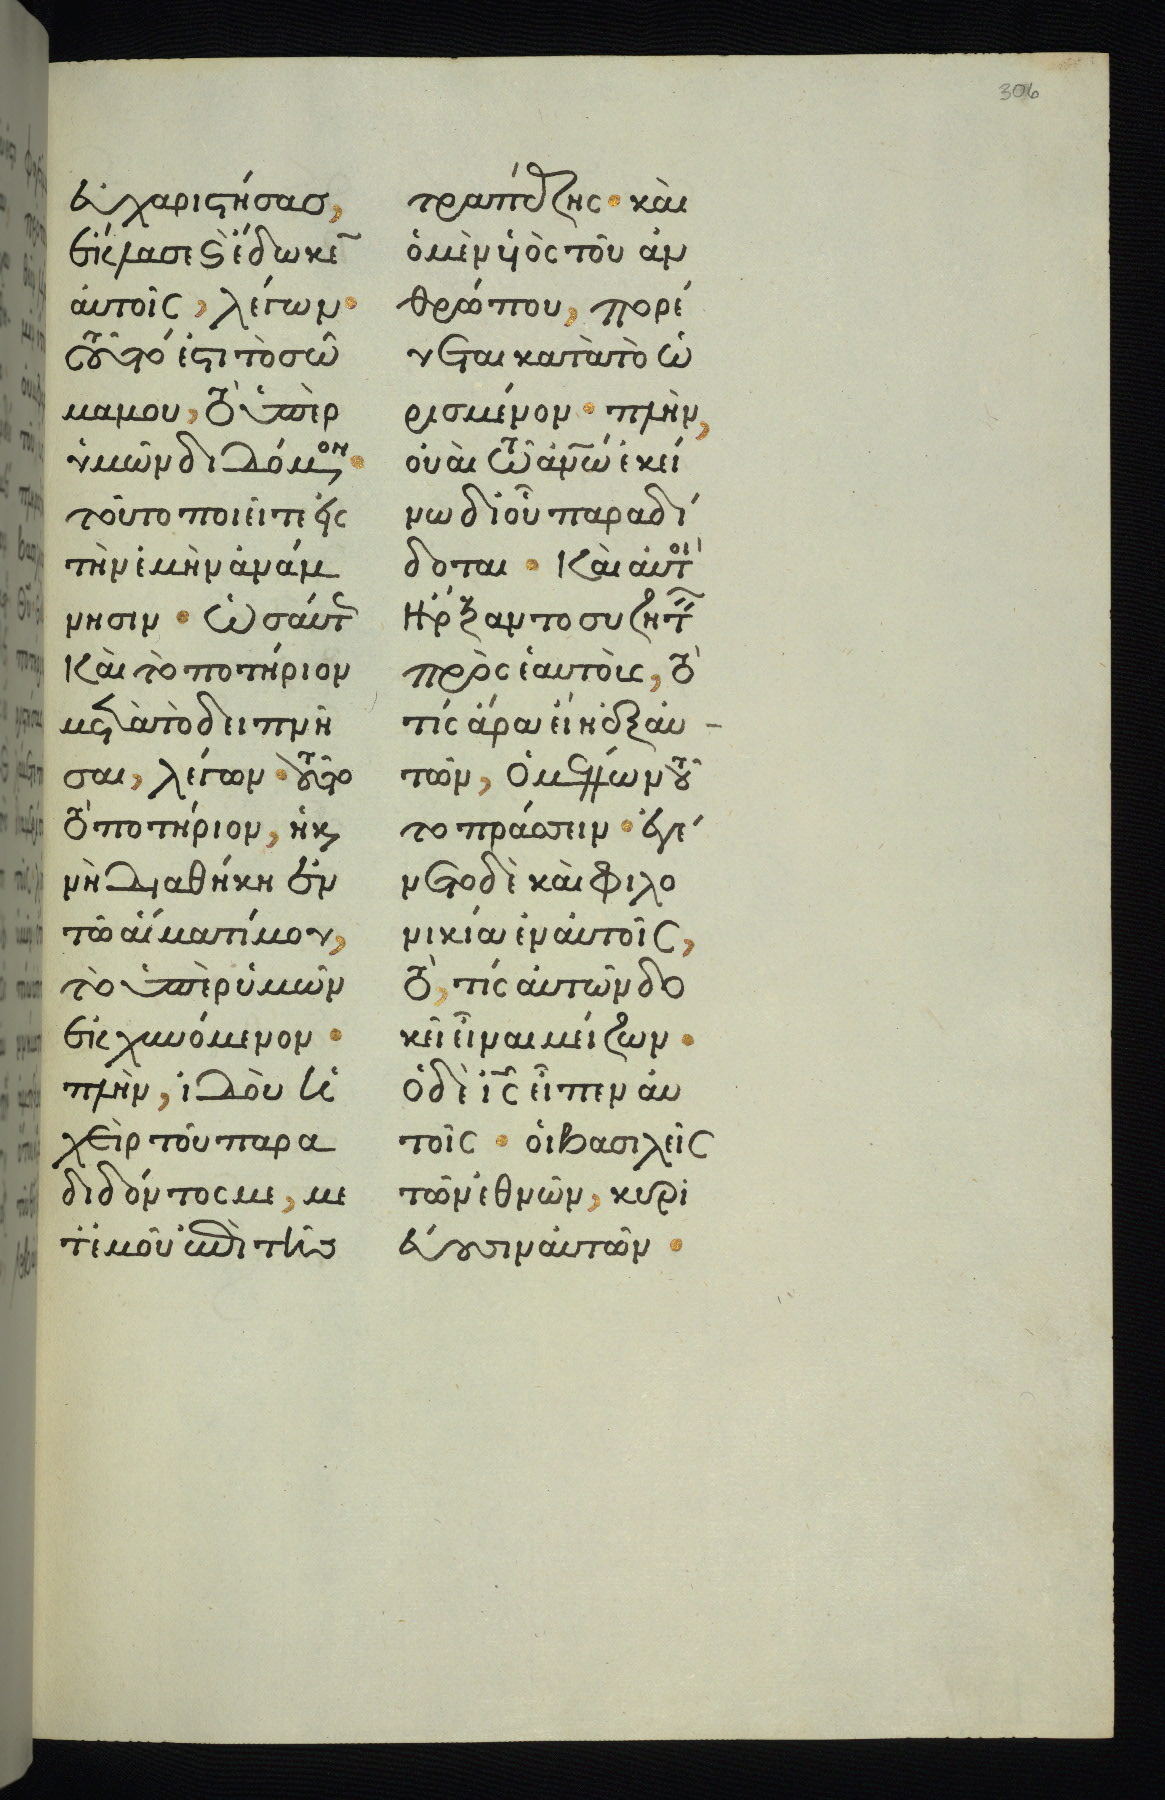 306
εὐχαριστήσας,
ἔκλασε καὶ ἔδωκεν
αὐτοῖς, λέγων·
τοῦτό ἐστι τὸ σῶ
μα μου, τὸ ὑπὲρ
ὑμῶν διδόμενον·
τοῦτο ποιεῖτε εἰς
τὴν ἐμὴν ἀνάμ
νησιν· ὡσαύτως
καὶ τὸ ποτήριον
μετὰ τὸ δειπνῆ
σαι, λέγων· τοῦτο
τὸ ποτήριον, ἡ και
νὴ διαθήκη ἐν
τῷ αἵματί μου,
τὸ ὑπὲρ ὑμῶν
ἐκχυνόμενον·
πλὴν, ἰδοὺ ἡ
χεὶρ τοῦ παρα
διδόντος με, με
τ' ἐμοῦ ἐπὶ τῆς
τραπέζης· καὶ
ὁ μὲν υἱὸς τοῦ ἀν
θρώπου, πορεύ
εται κατὰ τὸ ὡ
ρισμένον· πλὴν,
οὐαὶ τῷ ἀνῶ ἐκεί
νω δι' οὗ παραδί
δοται· Καὶ αὐτοὶ
ἤρξαντο συζητεῖν
πρὸς ἑαυτοὺς, τὸ
τίς ἄρα εἴη ἐξ αὐ
τῶν, ὁ μέλλων τοῦ
το πράσσειν· ἐγέ
νετο δὲ καὶ φιλο
νικία ἐν αὐτοῖς,
τὸ, τίς αὐτῶν δο
κεῖ εἶναι μείζων·
ὁ δὲ ἰς εἶπεν αὐ
τοῖς· οἱ βασιλεῖς
τῶν ἐθνῶν, κυρι
εύουσιν αὐτῶν·